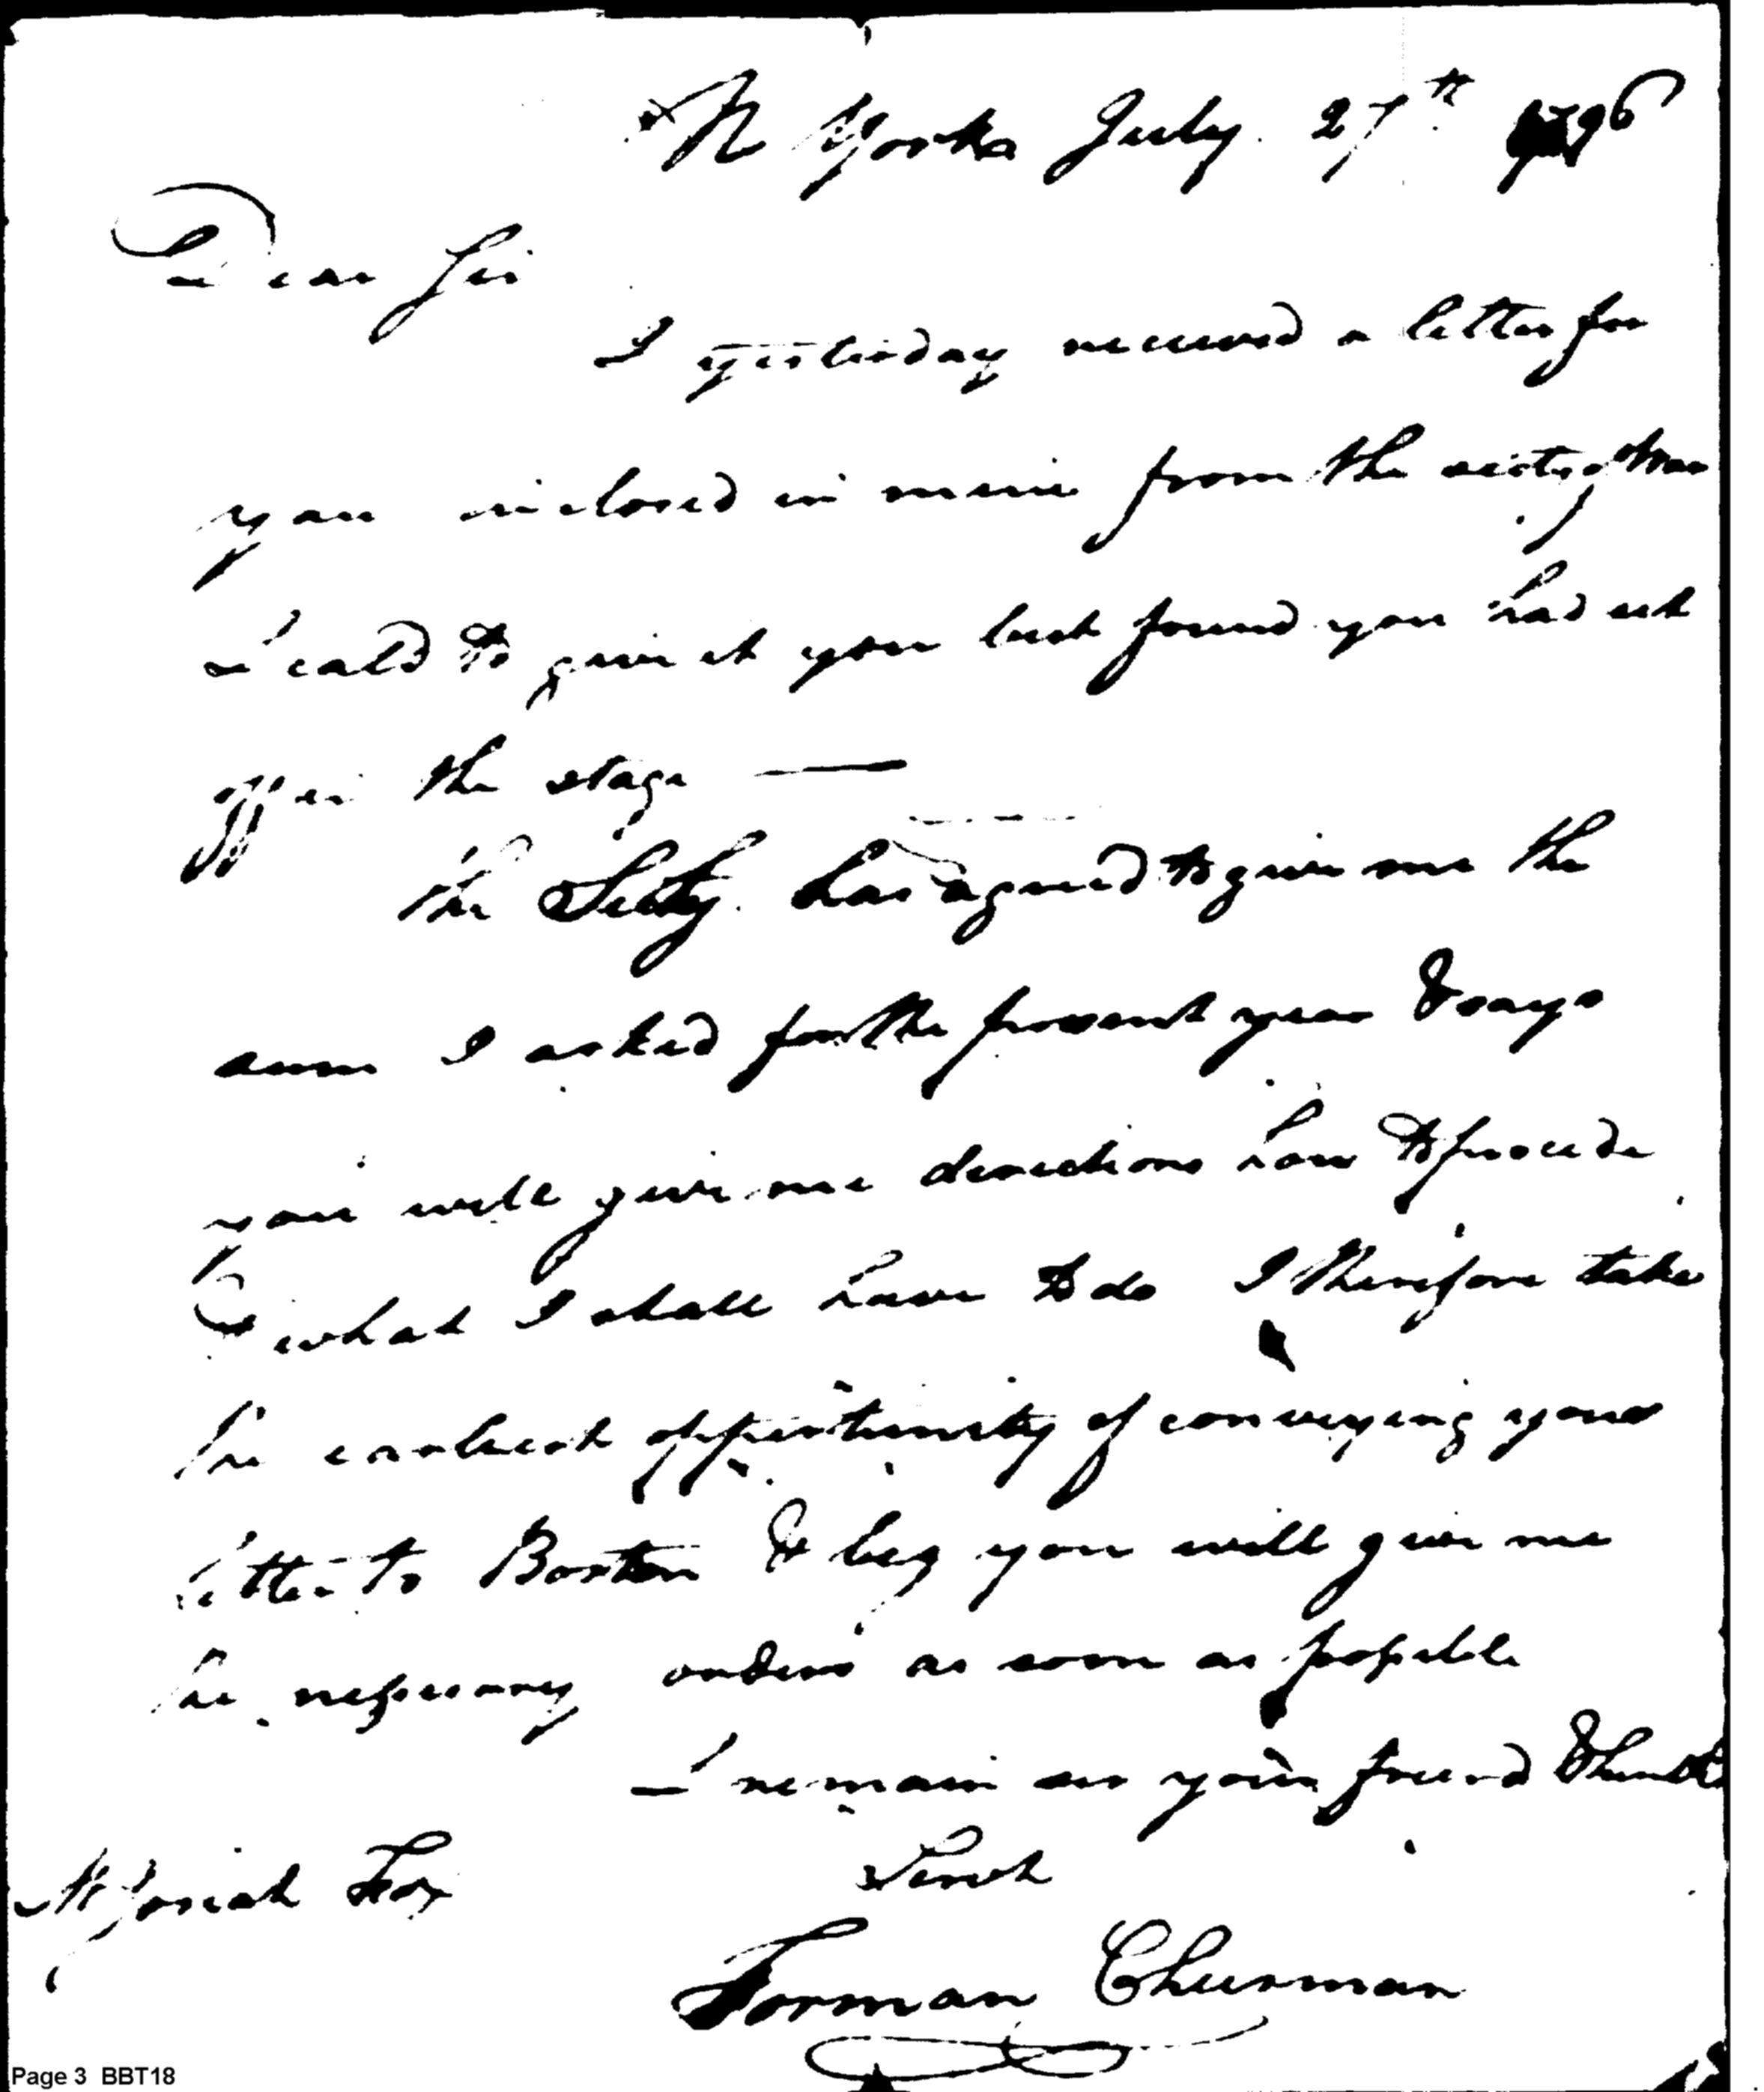 N York July 27th 1796
Dear Sir
I yesterday received a letter for
you inclosed in mine from the
I cald to give it you but found you had set
off in the stage —
the has agreed to give me the
sum I asked for the present year & says
you will give me directions how to procede
& what I shall have to do I therefore take
the earliest opportunity of conveying your
letter to Boston & beg you will give me
the nessesary orders as soon as possible
I remain as your friend & humble
Servt
Mr Josiah Fox
Forman Cheesman
Page 3 BBT18